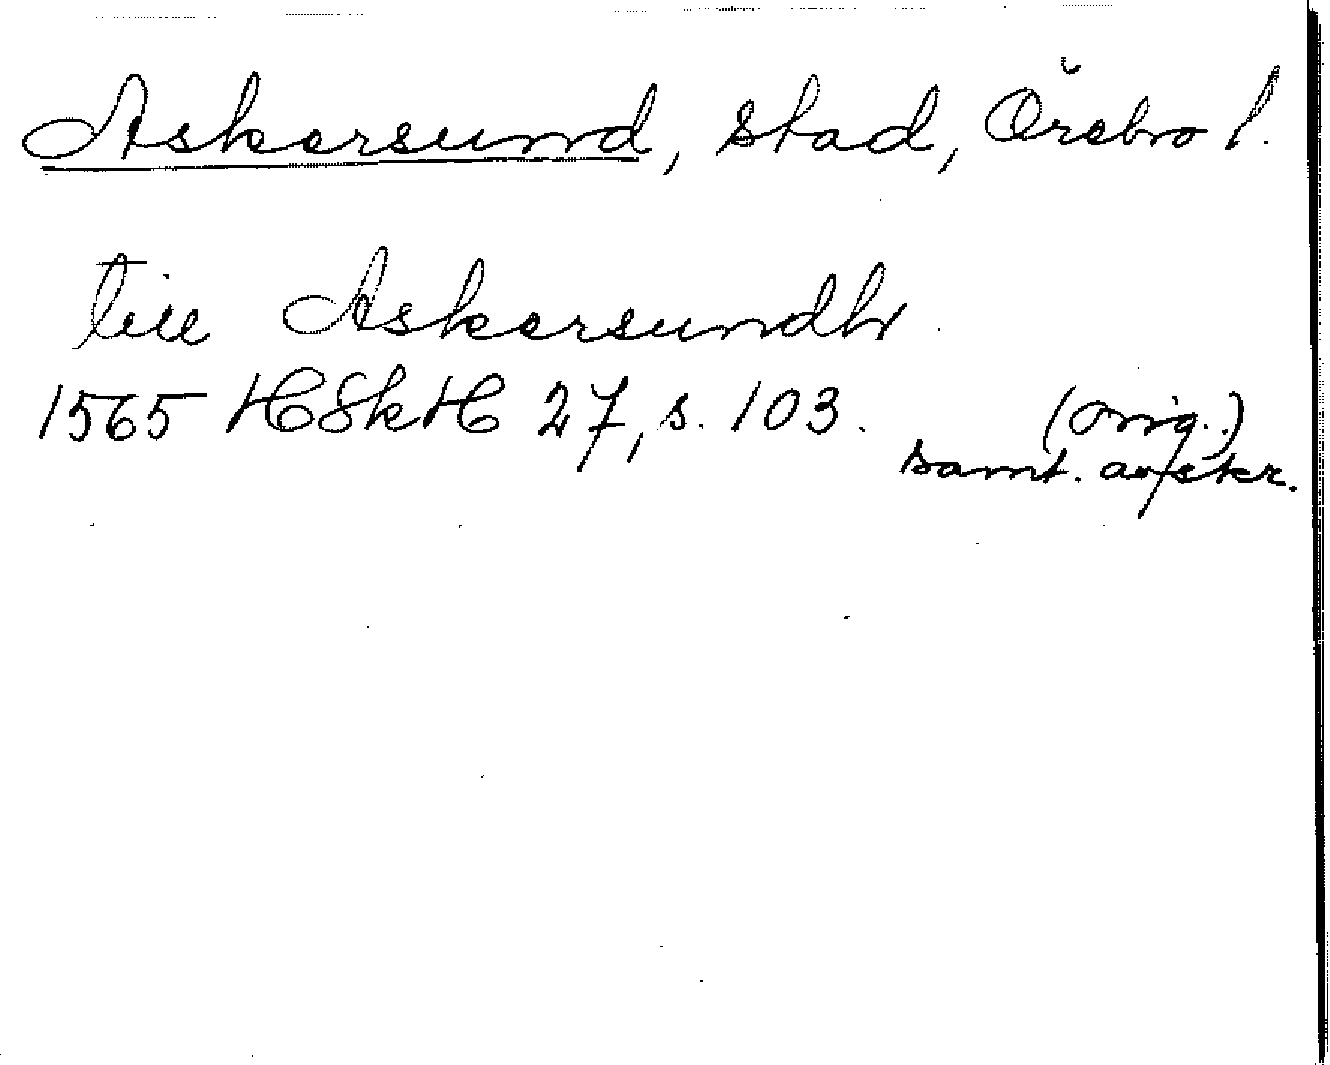 Askersund, stad, Örebro l.
till Askersundh
1565 HSkH 27, s. 103. (orig.)
samt. avskr.